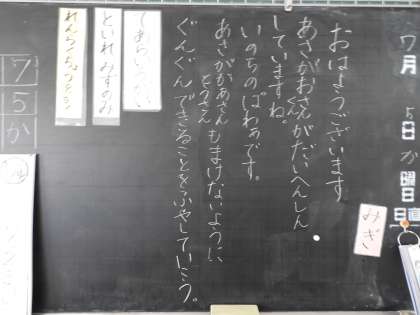 7月5日か曜日
日直
みぎ
おはようございます
あさがおさんがだいへんしん
くん
していますね。
いのちのぱわぁです。
あさががあさん
とうさん
もまけないように
ぐんぐんできることをふやしていこう。
といれみずのみ
7
5
か